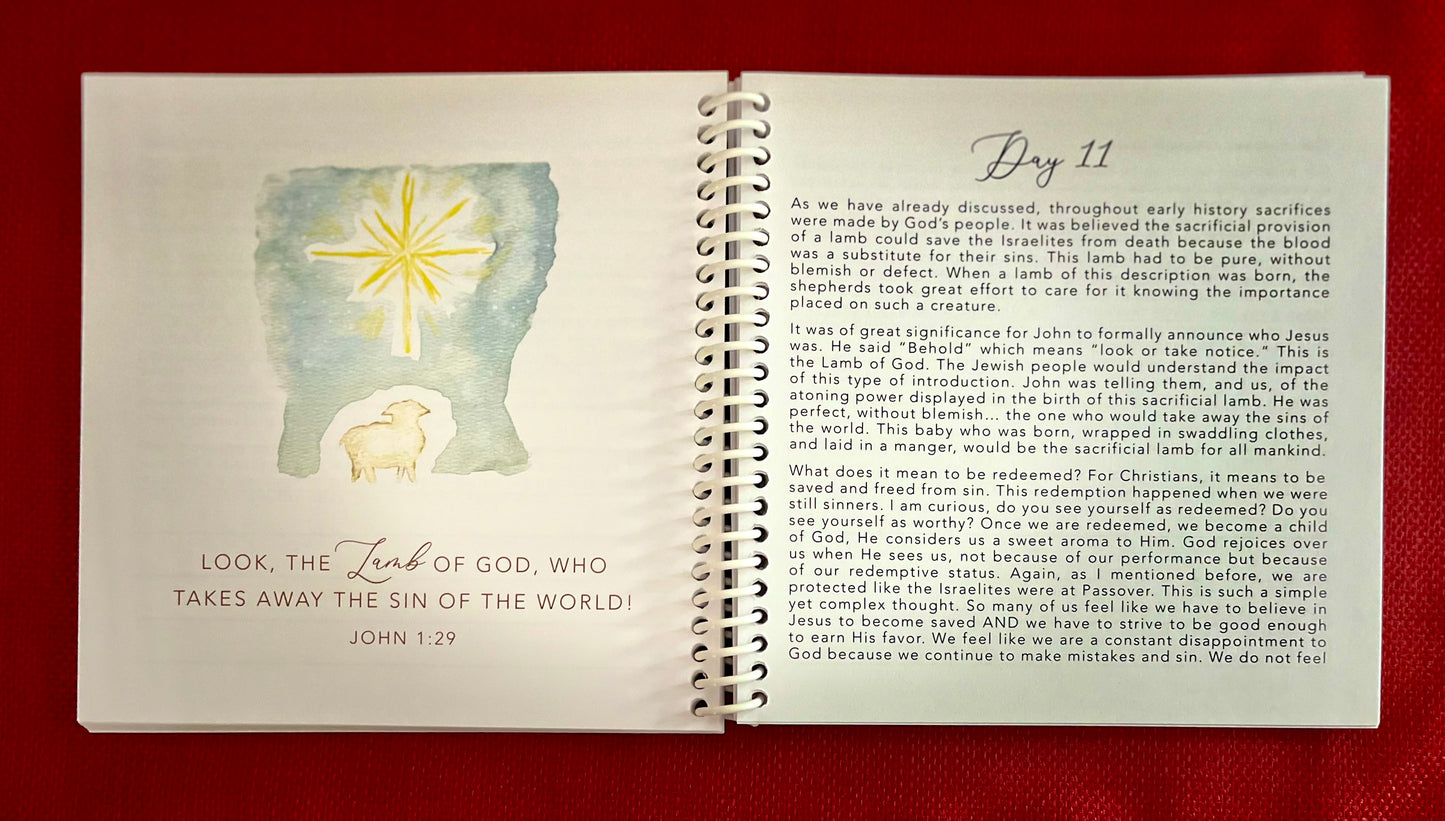 LOOK, THE Lamb OF GOD, WHO
TAKES AWAY THE SIN OF THE WORLD!
JOHN 1:29
Day 11
As we have already discussed, throughout early history sacrifices
were made by God's people. It was believed the sacrificial provision
of a lamb could save the Israelites from death because the blood
was a substitute for their sins. This lamb had to be pure, without
blemish or defect. When a lamb of this description was born, the
shepherds took great effort to care for it knowing the importance
placed on such a creature.
It was of great significance for John to formally announce who Jesus
was. He said “Behold” which means “look or take notice.” This is
the Lamb of God. The Jewish people would understand the impact
of this type of introduction. John was telling them, and us, of the
atoning power displayed in the birth of this sacrificial lamb. He was
perfect, without blemish... the one who would take away the sins of
the world. This baby who was born, wrapped in swaddling clothes,
and laid in a manger, would be the sacrificial lamb for all mankind.
What does it mean to be redeemed? For Christians, it means to be
saved and freed from sin. This redemption happened when we were
still sinners. I am curious, do you see yourself as redeemed? Do you
see yourself as worthy? Once we are redeemed, we become a child
of God, He considers us a sweet aroma to Him. God rejoices over
us when He sees us, not because of our performance but because
of our redemptive status. Again, as I mentioned before, we are
protected like the Israelites were at Passover. This is such a simple
yet complex thought. So many of us feel like we have to believe in
Jesus to become saved AND we have to strive to be good enough
to earn His favor. We feel like we are a constant disappointment to
God because we continue to make mistakes and sin. We do not feel